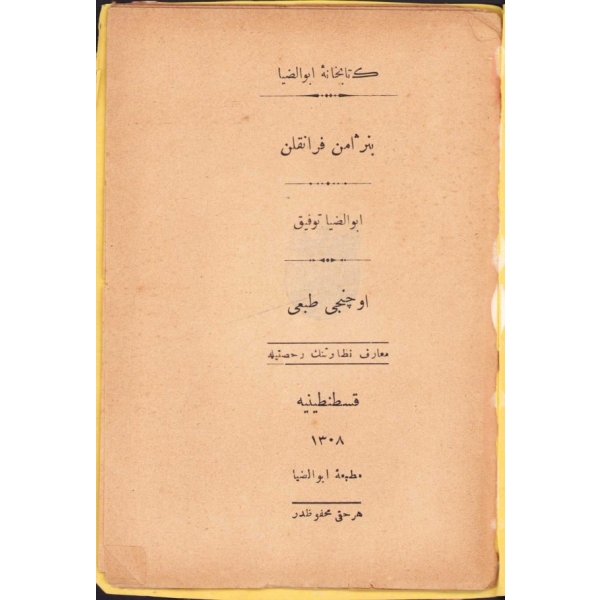 كتابخانهٔ ابوالضيا
بنژامن فرانقلن
ابوالضيا توفيق
اوچنجی طبعی
معارف نظارتنك رخصتيله
قسطنطينيه
١٣٠٨
مطبعهٔ ابوالضيا
هر حقی محفوظدر